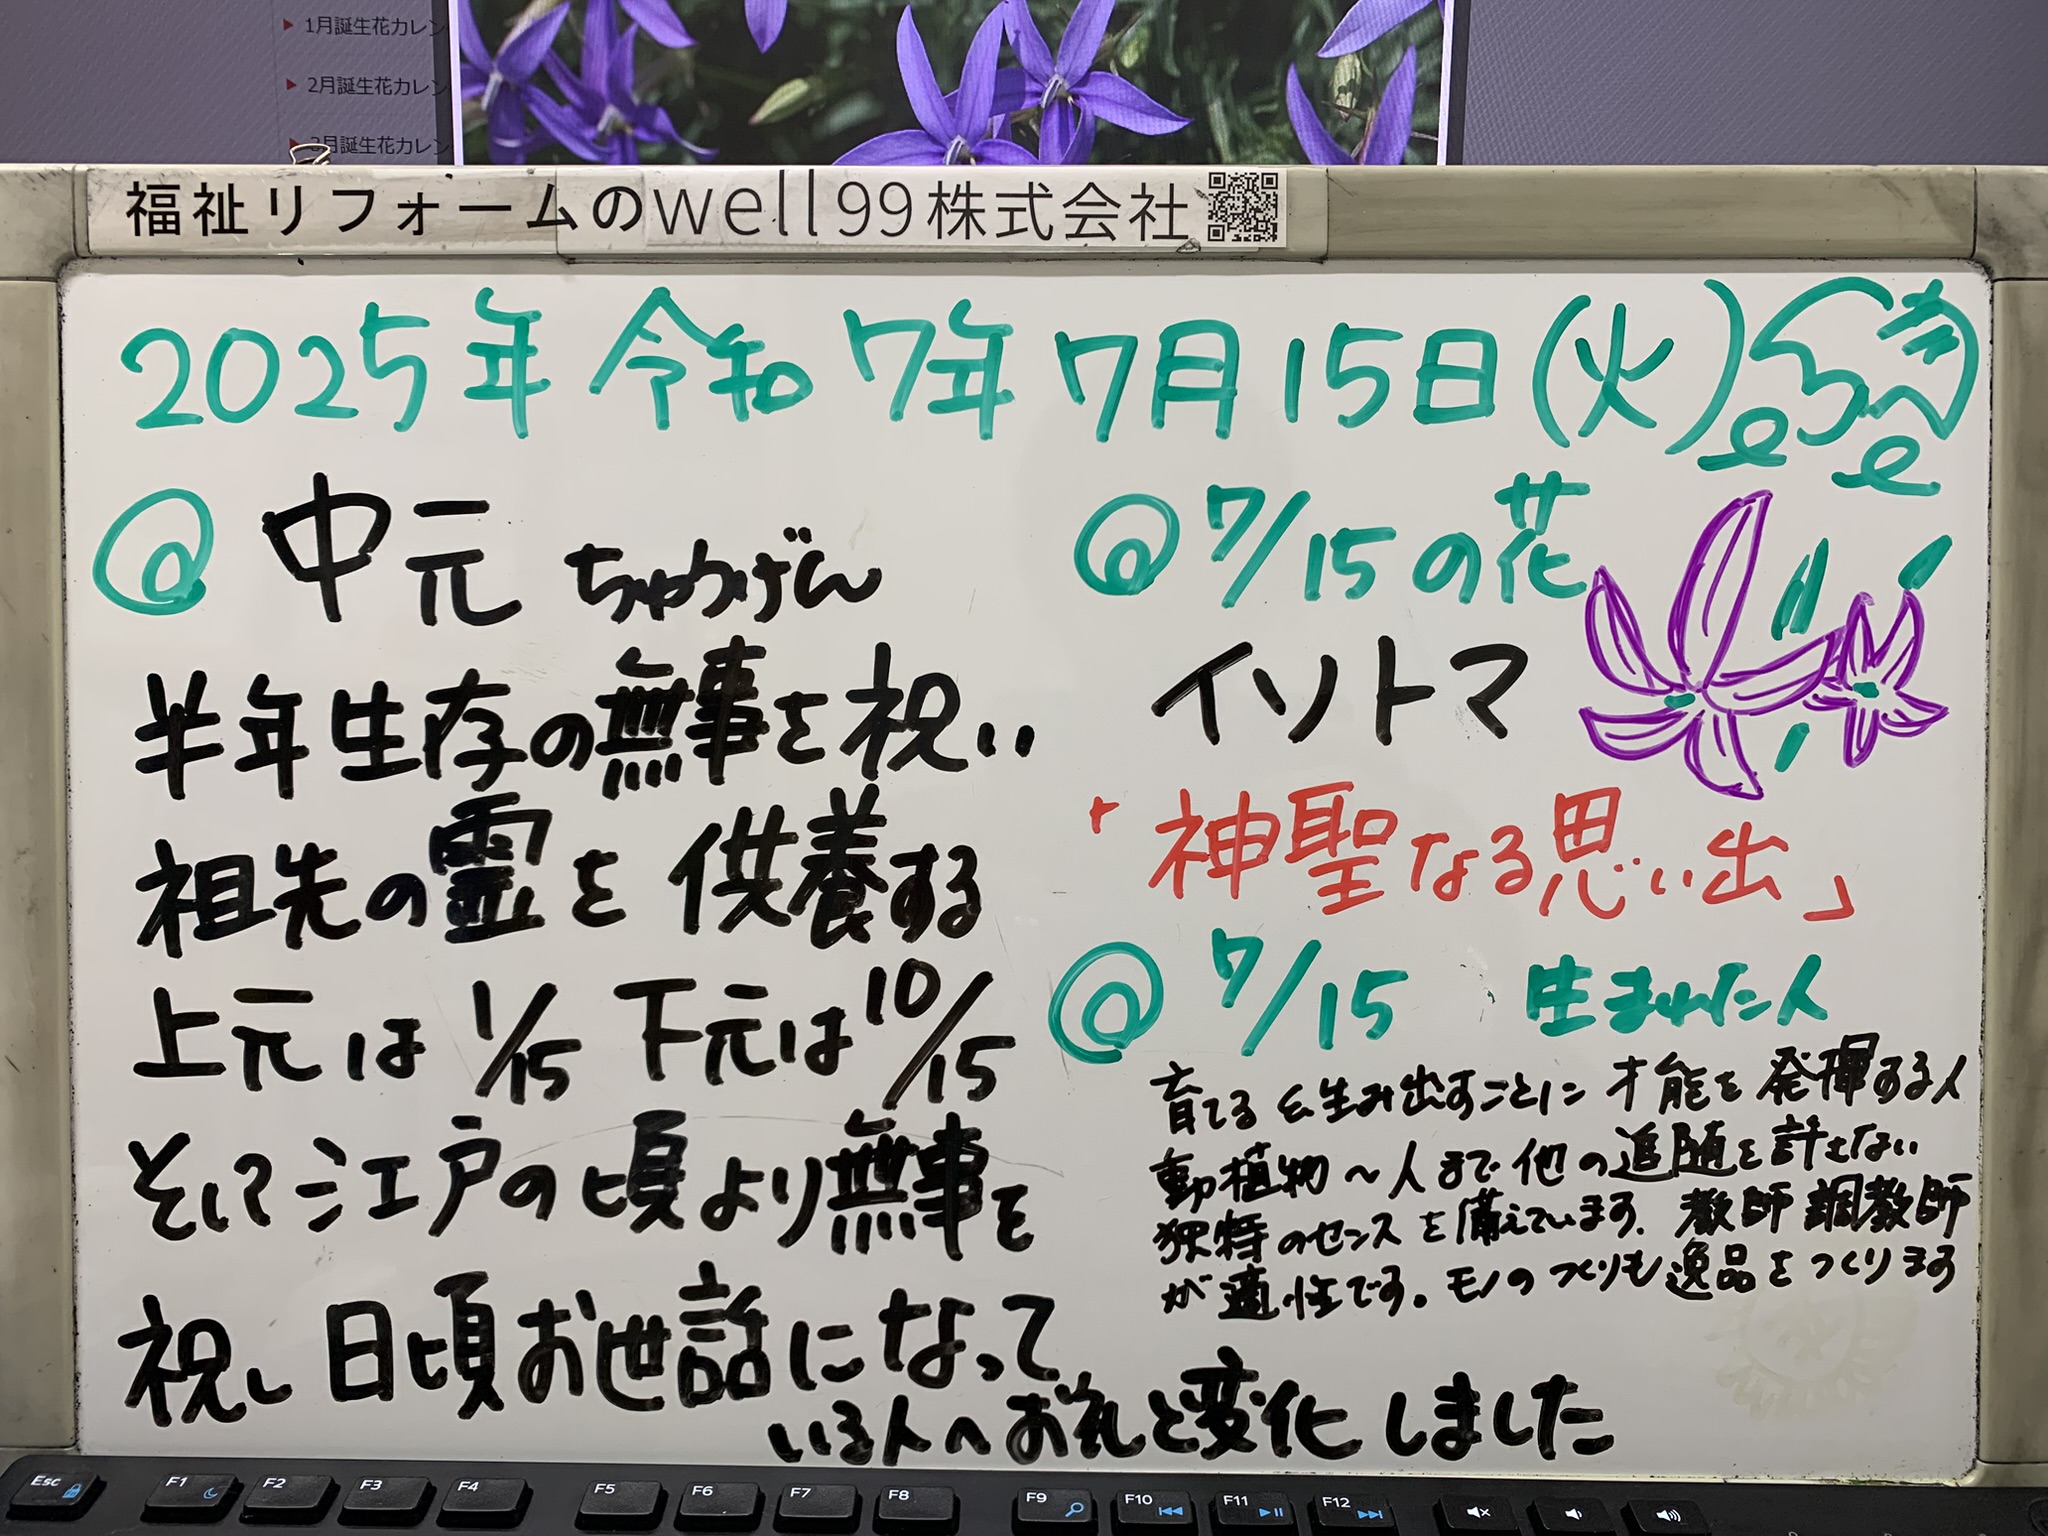 1月誕生花カレン
2月誕生花カレン
3月誕生花カレン
福祉リフォームのwell99株式会社
2025年 令和7年 7月15日(火)
@ 中元 ちゅうげん
半年生存の無事を祝い
祖先の霊を供養する
上元は1/15 下元は10/15
そして江戸の頃より無事を
祝し 日頃お世話になって
いる人へお礼と変化しました
@ 7/15の花
イソトマ
「神聖なる思い出」
@ 7/15 生まれた人
育てる&生み出すことに才能を発揮する人
動植物〜人まで他の追随を許さない
独特のセンスを備えています. 教師 調教師
が適性です。モノのつくりも逸品をつくります
Esc F1 F2 F3 F4 F5 F6 F7 F8 F9 F10 F11 F12